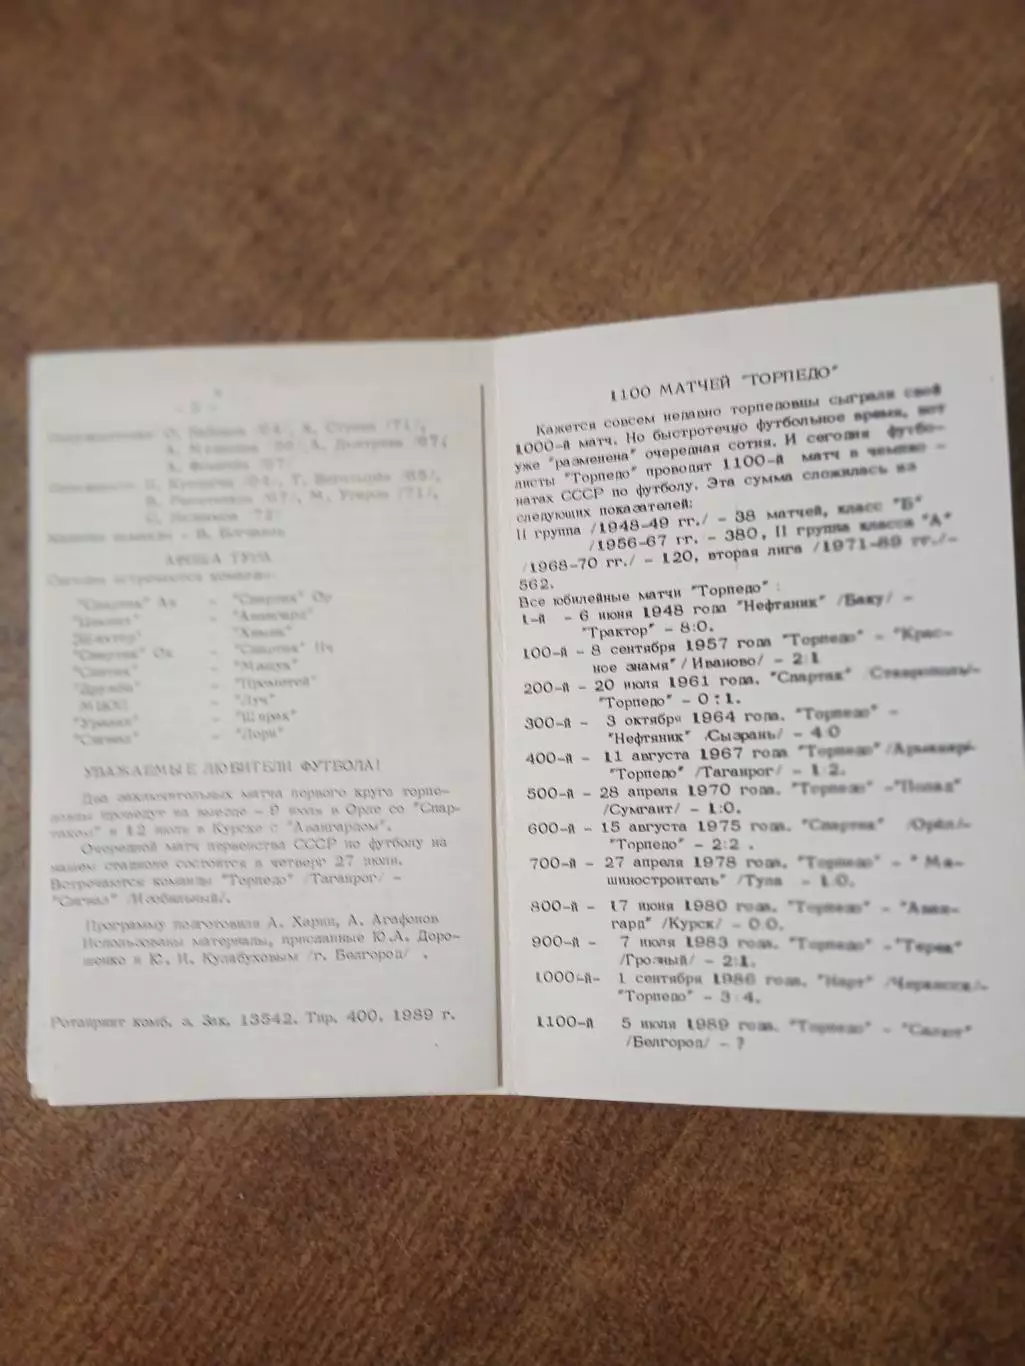 - 5 -
АФИША ТУРА
Сегодня встречаются команды:
"Спартак" Ор
"Шахтер"
"Спартак" Ор
"Спартак" Нч
"Машук"
"Дружба" - "Прометей"
МЦОП - "Луч"
"Уралан" - "Ширак"
"Сигнал" - "Лори"
УВАЖАЕМЫЕ ЛЮБИТЕЛИ ФУТБОЛА!
Два заключительных матча первого круга торпе-
довцы проведут на выезде - 9 июля в Орле со "Спар-
таком" и 12 июля в Курске с "Авангардом".
Очередной матч первенства СССР по футболу на
нашем стадионе состоится в четверг 27 июля.
Встречаются команды "Торпедо" /Таганрог/ -
"Сигнал" /Изобильный/.
Программу подготовили А. Харин, А. Агафонов
Использованы материалы, присланные Ю.А. Доро-
шенко и Ю. И. Кулабуховым /г. Белгород/ .
Ротапринт комб. з. Зак. 13542. Тир. 400. 1989 г.
1100 МАТЧЕЙ "ТОРПЕДО"
Кажется совсем недавно торпедовцы сыграли свой
1000-й матч. Но быстротечно футбольное время, вот
уже "разменена" очередная сотня. И сегодня футбо-
листы "Торпедо" проводят 1100-й матч в чемпио -
натах СССР по футболу. Эта сумма сложилась из
следующих показателей:
II группа /1948-49 гг./ - 38 матчей, класс "Б"
/1956-67 гг. - 380, II группа класса "А"
/1968-70 гг./ - 120, вторая лига /1971-89 гг./-
562.
Все юбилейные матчи "Торпедо" :
1-й - 6 июня 1948 года "Нефтяник" /Баку/ -
"Трактор" - 8:0.
100-й - 8 сентября 1957 года "Торпедо" - "Крас-
ное знамя" /Иваново/ - 2:1
200-й - 20 июля 1961 года. "Спартак" /Ставрополь/-
"Торпедо" - 0:1.
300-й - 3 октября 1964 года. "Торпедо" -
"Нефтяник" /Сызрань/ - 4:0
400-й - 11 августа 1967 года "Торпедо" /Армавир/-
"Торпедо" /Таганрог/ - 1:2.
500-й - 28 апреля 1970 года. "Торпедо" -"Полад"
/Сумгаит/ - 1:0.
600-й - 15 августа 1975 года. "Спартак" /Орёл/-
"Торпедо" - 2:2 .
700-й - 27 апреля 1978 года. "Торпедо" - "Ма-
шиностроитель" /Тула - 1:0.
800-й - 17 июня 1980 года. "Торпедо" - "Аван-
гард" /Курск/ - 0:0.
900-й - 7 июля 1983 года. "Торпедо" -"Терек"
/Грозный/ - 2:1.
1000-й- 1 сентября 1986 года. "Нарт" /Черкесск/-
"Торпедо" - 3:4.
1100-й 5 июля 1989 года. "Торпедо" - "Салют"
/Белгород/ - ?